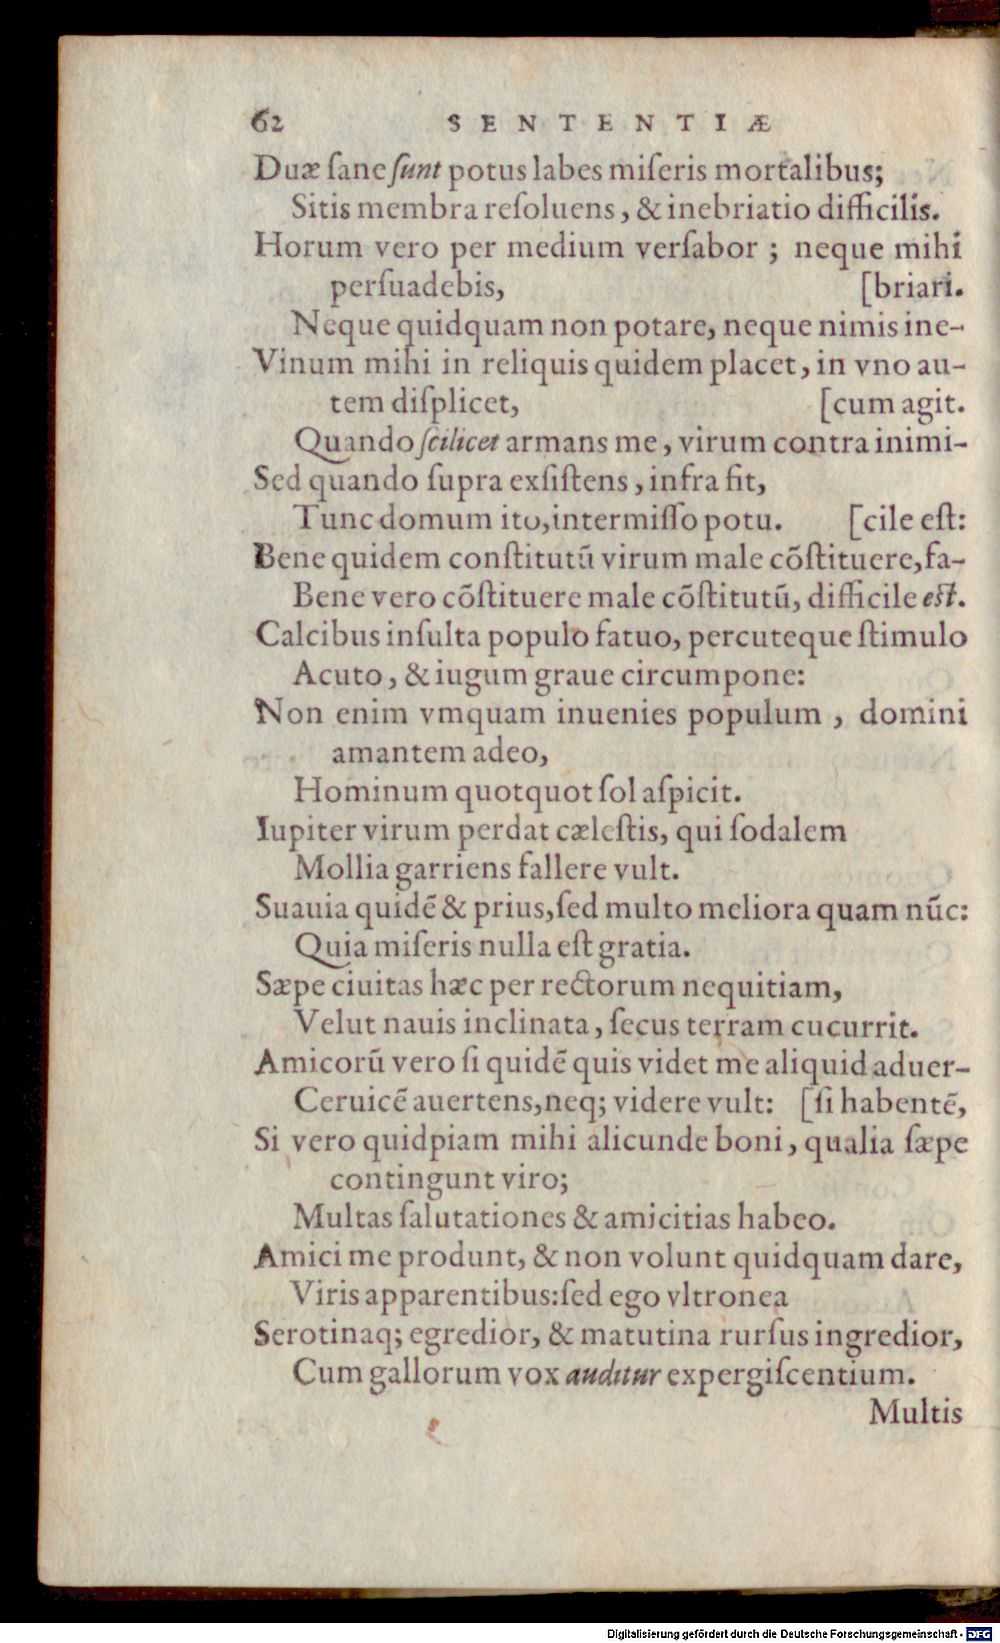 62 SENTENTIÆ
Duæ ſane ſunt potus labes miſeris mortalibus;
Sitis membra reſoluens, & inebriatio difficilis.
Horum vero per medium verſabor ; neque mihi
perſuadebis, [briari.
Neque quidquam non potare, neque nimis ine-
Vinum mihi in reliquis quidem placet, in vno au-
tem diſplicet, [cum agit.
Quando ſcilicet armans me, virum contra inimi-
Sed quando ſupra exſiſtens, infra fit,
Tunc domum ito, intermiſſo potu. [cile eſt:
Bene quidem conſtitutũ virum male cõſtituere, fa-
Bene vero cõſtituere male cõſtitutũ, difficile eſt.
Calcibus inſulta populo fatuo, percuteque ſtimulo
Acuto, & iugum graue circumpone:
Non enim vmquam inuenies populum , domini
amantem adeo,
Hominum quotquot ſol aſpicit.
Iupiter virum perdat cæleſtis, qui ſodalem
Mollia garriens fallere vult.
Suauia quidẽ & prius, ſed multo meliora quam nũc:
Quia miſeris nulla eſt gratia.
Sæpe ciuitas hæc per rectorum nequitiam,
Velut nauis inclinata, ſecus terram cucurrit.
Amicorũ vero ſi quidẽ quis videt me aliquid aduer-
Ceruicẽ auertens, neq; videre vult: [ſi habentẽ,
Si vero quidpiam mihi alicunde boni, qualia ſæpe
contingunt viro;
Multas ſalutationes & amicitias habeo.
Amici me produnt, & non volunt quidquam dare,
Viris apparentibus: ſed ego vltronea
Serotinaq; egredior, & matutina rurſus ingredior,
Cum gallorum vox auditur expergiſcentium.
Multis
Digitalisierung gefördert durch die Deutsche Forschungsgemeinschaft - DFG